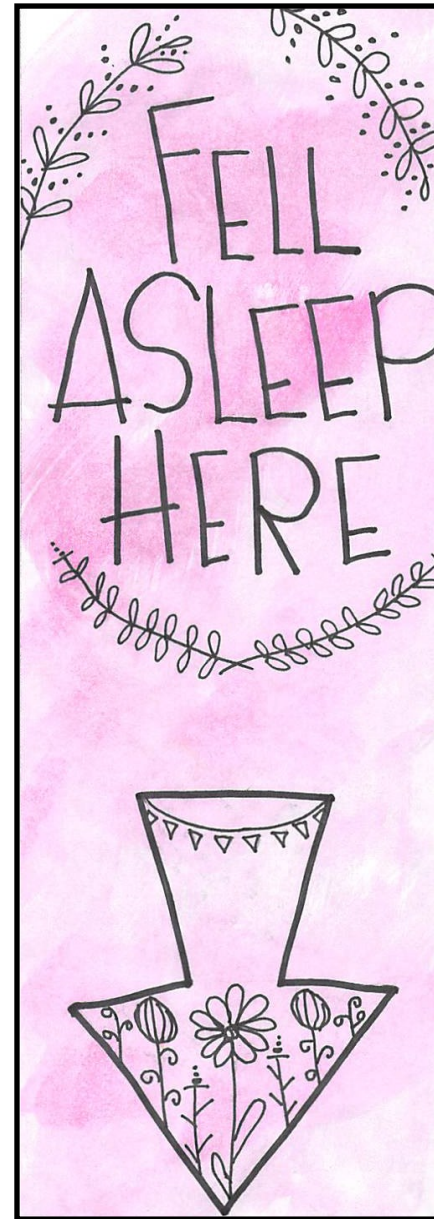 FELL
ASLEEP
HERE